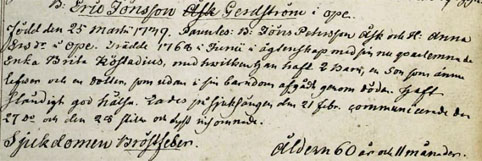 B: Eric Jönsson Ask Gerdström i Ope.
Född den 25 Martii 1749. Parentes: B: Jöns Pehrsson Ask och H. Anna
i Ope. Trädde 1768 i Junii i ägtenskap med sin nu qvarlemnade
Enka Brita Röstadius, med hvilken han haft 2 Barn, en son som ännu
lefver och en dotter som redan i sin barndom afgådt genom döden. Haft
ständigt god hälsa. Lades på sjuksängen den 21 febr. communicerade den
27de och den 28 stilla och afsomnade.
Sjukdomen Bröstfeber. Åldern 60 år och 11 månader.